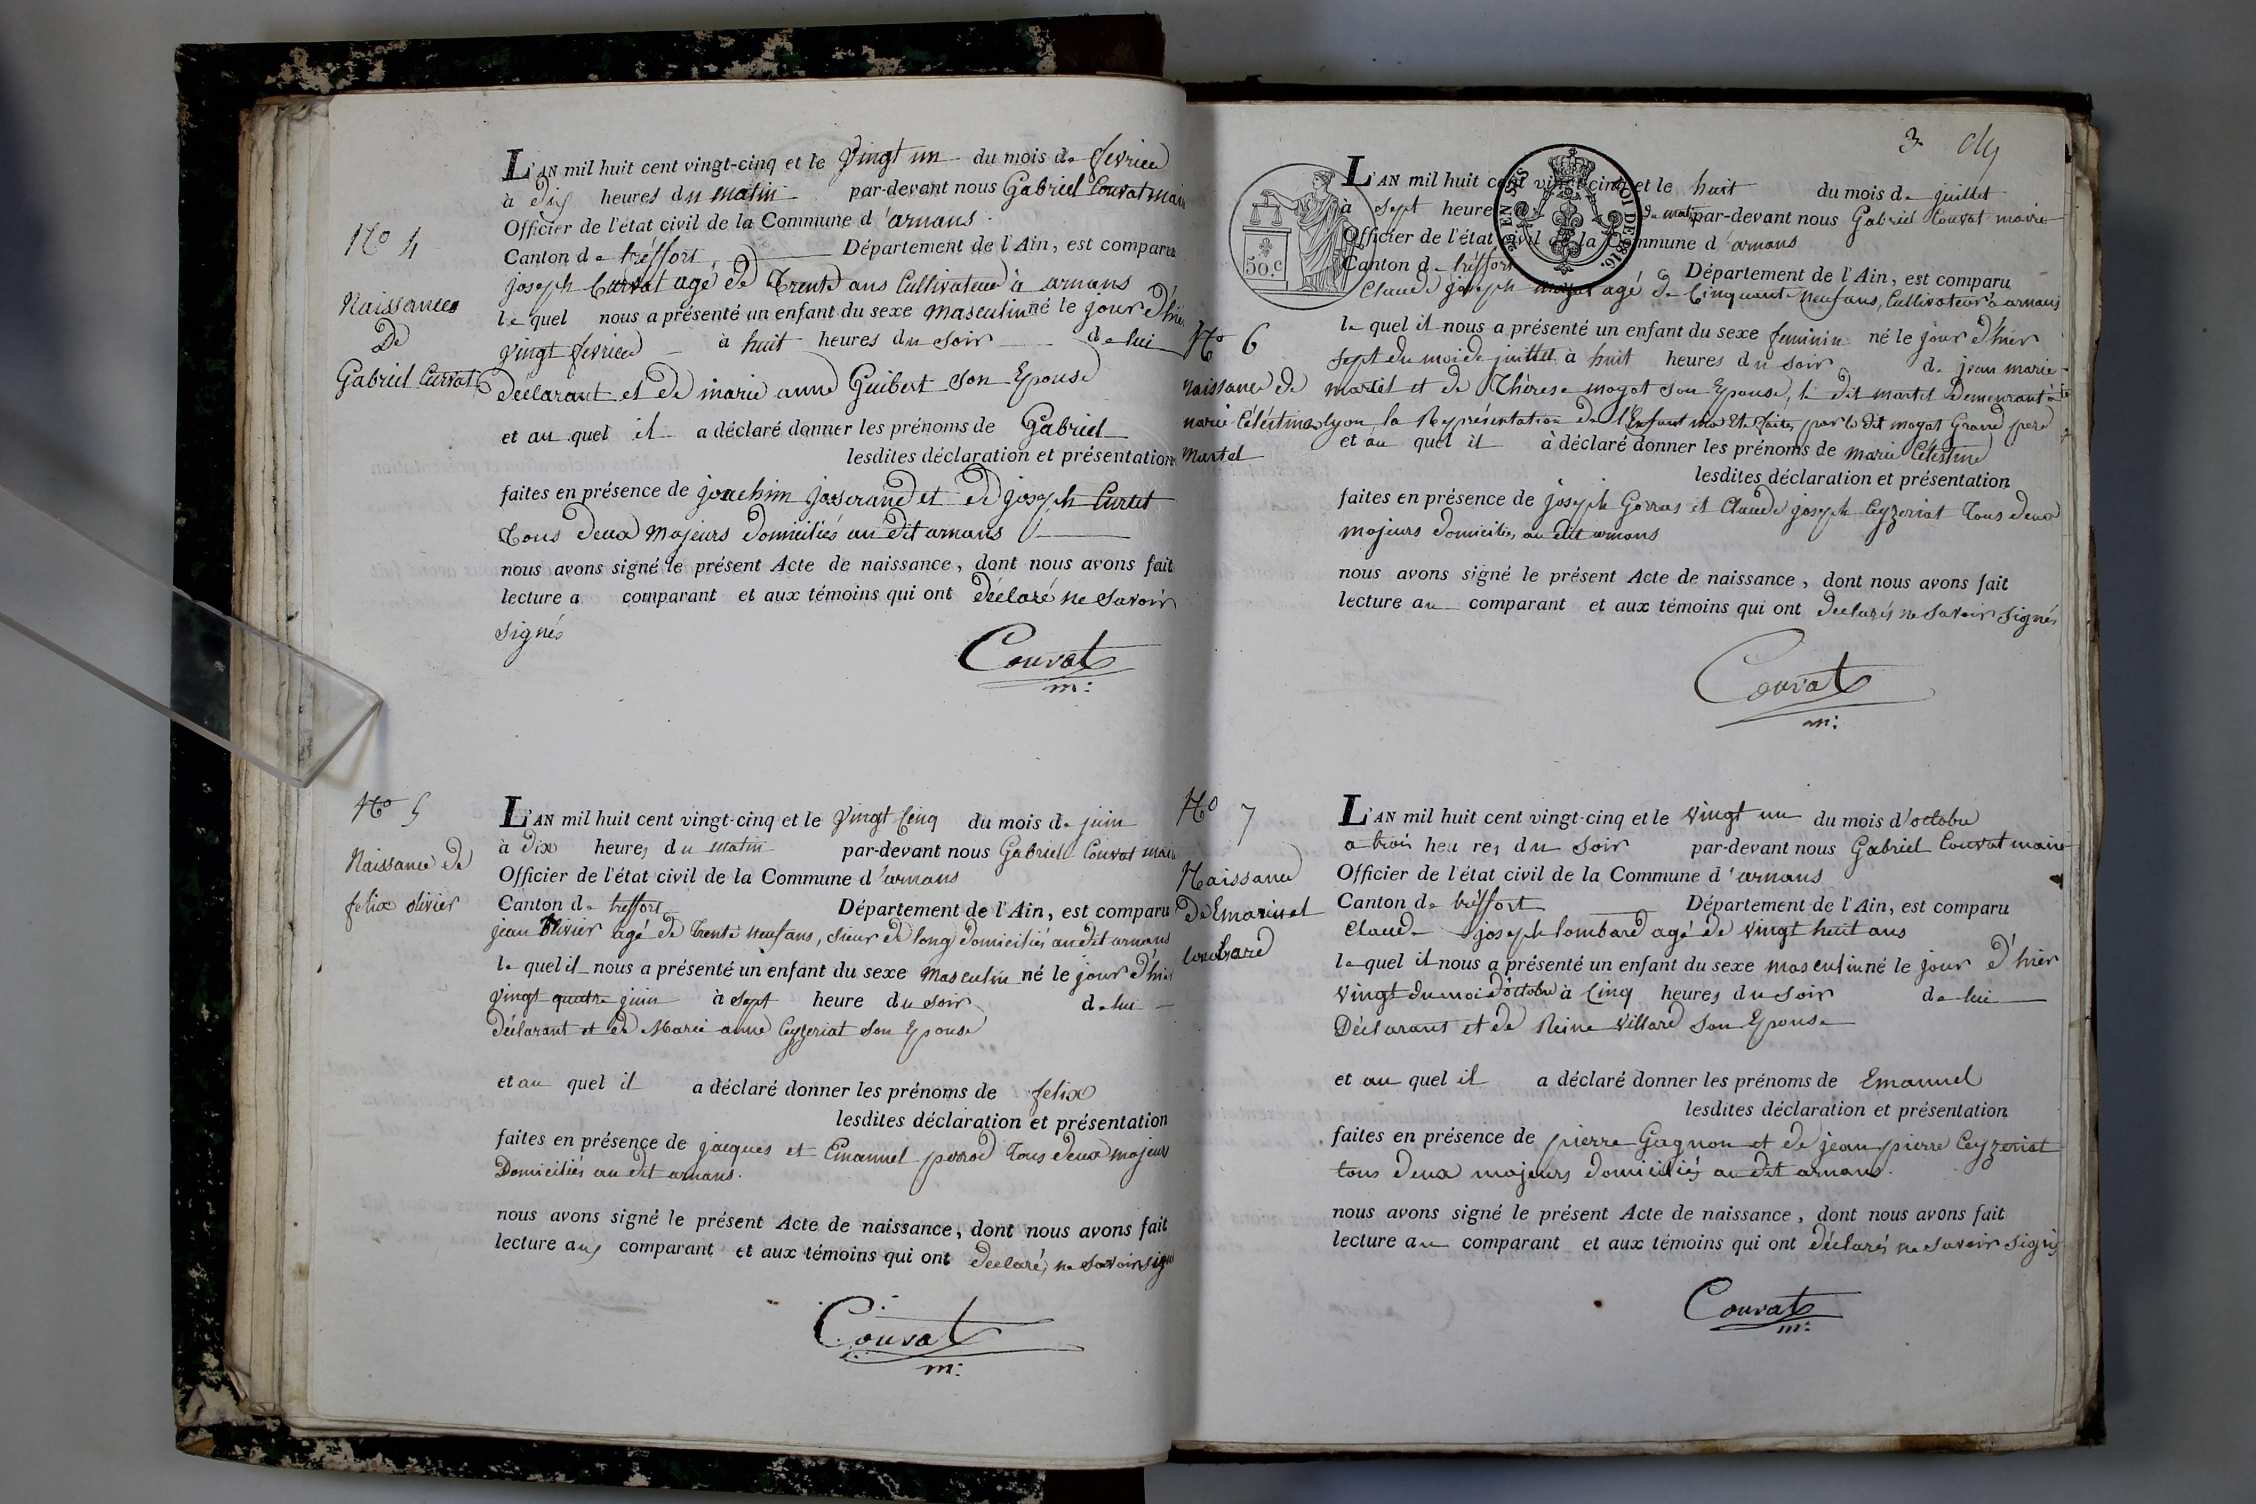 No 4
Naissance
De
Gabriel Curvat
L'AN mil huit cent vingt-cinq et le vingt un du mois de fevrier
à dix heures du matin par-devant nous Gabriel Couvat maire
Officier de l'état civil de la Commune d'arnans
Canton de tréffort Département de l'Ain, est comparu
joseph Curvat agé de trente ans Cultivateur à arnans
le quel nous a présenté un enfant du sexe masculin né le jour d'hier
vingt fevrier à huit heures du soir de lui
déclarant et de marie anne Guibert son Epouse
et au quel il a déclaré donner les prénoms de Gabriel
lesdites déclaration et présentation
faites en présence de joachim josserand et de joseph Curtet
tous deux majeurs domiciliés au dit arnans
nous avons signé le présent Acte de naissance, dont nous avons fait
lecture a comparant et aux témoins qui ont déclaré ne savoir
signés
Couvat
m:
No 5
Naissance de
felix olivier
L'AN mil huit cent vingt-cinq et le vingt cinq du mois de juin
à dix heures du matin par-devant nous Gabriel Couvat maire
Officier de l'état civil de la Commune d'arnans
Canton de treffort Département de l'Ain, est comparu
jean olivier agé de trente neuf ans, sieur de long domicilié au dit arnans
le quel il nous a présenté un enfant du sexe masculin né le jour d'hier
vingt quatre juin à sept heure du soir de lui
déclarant et de Marie anne Ceyzeriat son Epouse
et au quel il a déclaré donner les prénoms de felix
lesdites déclaration et présentation
faites en présence de jacques et Emanuel perrod tous deux majeurs
Domiciliés au dit arnans.
nous avons signé le présent Acte de naissance, dont nous avons fait
lecture aux comparant et aux témoins qui ont declarés ne savoir signer
Couvat
m:
3
50.c
L'AN mil huit cent vingt-cinq et le huit du mois de juillet
à sept heures du matin par-devant nous Gabriel Couvat maire
Officier de l'état civil de la Commune d'arnans
Canton de tréffort Département de l'Ain, est comparu
Claude joseph moyat agé de Cinquante neuf ans, Cultivateur à arnans
No 6
naissance de
marie Céléstine
Martel
le quel il nous a présenté un enfant du sexe feminin né le jour d'hier
sept du mois de juillet à huit heures du soir de jean marie
martel et de Thérese moyat son Epouse, le dit martel Demeurant à
lyon la Représentation de l'Enfant m'a Eté faite, par le dit moyat Grand pere
et au quel il à déclaré donner les prénoms de marie Célestine
lesdites déclaration et présentation
faites en présence de joseph Gorras et Claude joseph Ceyzeriat tous deux
majeurs domiciliés au dit arnans
nous avons signé le présent Acte de naissance, dont nous avons fait
lecture au comparant et aux témoins qui ont declarés ne savoir signés
Couvat
m:
No 7
Naissance
De Emanuel
Lombard
L'AN mil huit cent vingt-cinq et le vingt un du mois d'octobre
a trois heures du soir par-devant nous Gabriel Couvat maire
Officier de l'état civil de la Commune d'arnans
Canton de tréffort Département de l'Ain, est comparu
Claude joseph lombard agé de vingt huit ans
le quel il nous a présenté un enfant du sexe masculin né le jour d'hier
vingt du moi d'octobre à Cinq heures du soir de lui
Déclarant et de Reine villard son Epouse
et au quel il a déclaré donner les prénoms de Emanuel
lesdites déclaration et présentation
faites en présence de pierre Gagnon et de jean pierre Ceyzeriat
tous deux majeurs domiciliés au dit arnans.
nous avons signé le présent Acte de naissance, dont nous avons fait
lecture au comparant et aux témoins qui ont déclarés ne savoir signés
Couvat
m: